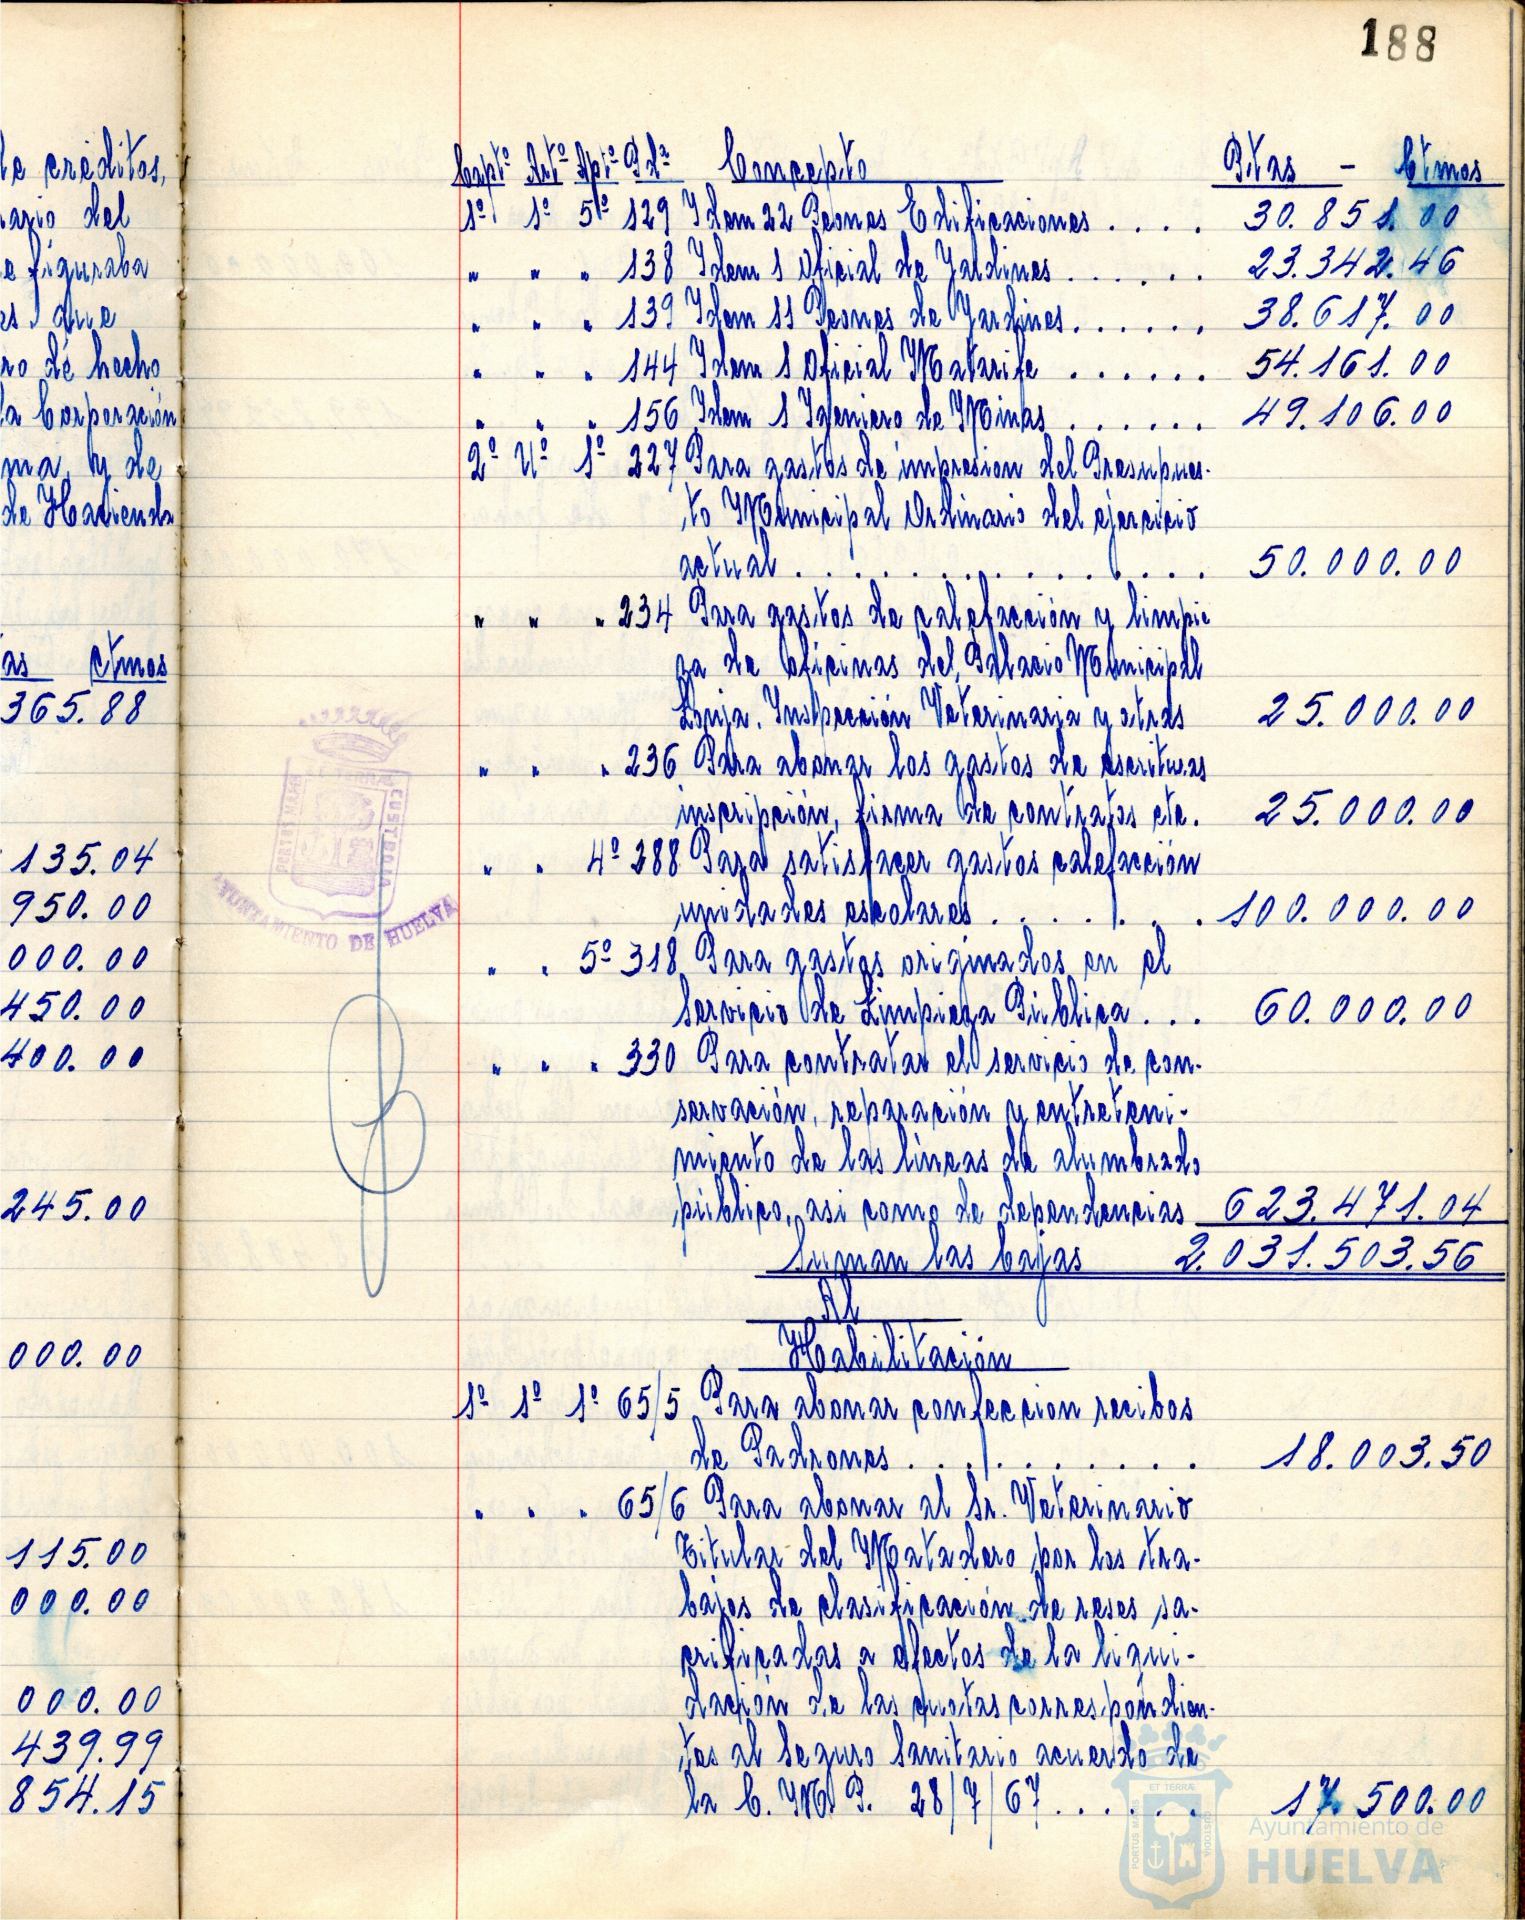 188
le créditos,
nario del
e figuraba
es que
ro de hecho
la Corporación
ma, y de
de Hacienda
as ctmos
365.88
135.04
950.00
000.00
450.00
400.00
245.00
000.00
115.00
000.00
000.00
439.99
854.15
Capº Artº Aptº Pdª Concepto Ptas - Ctmos
1º 1º 5º 129 Idem 22 Peones Edificaciones . . . . 30.851.00
" " " 138 Idem 1 Oficial de Jardines . . . . . . 23.342.46
" " " 139 Idem 11 Peones de Jardines . . . . . . 38.617.00
" " " 144 Idem 1 Oficial Matarife . . . . . . 54.161.00
" " " 156 Idem 1 Igeniero de Minas . . . . . . 49.106.00
2º Uº 1º 227 Para gastos de impresion del Presupues-
to Municipal Ordinario del ejercicio
actual . . . . . . . . . . . . . . 50.000.00
" " " 234 Para gastos de calefacción y limpie
za de Oficinas del Palacio Municipal
Lonja. Inspección Veterinaria y otras 25.000.00
" " " 236 Para abonar los gastos de escrituras
inscripción, firma de contratos etc. 25.000.00
" " 4º 288 Para satisfacer gastos calefacción
unidades escolares . . . . . . . 100.000.00
" " 5º 318 Para gastos originados en el
Servicio de Limpieza Pública . . . 60.000.00
" " " 330 Para contratar el servicio de con-
servación, reparación y entreteni-
miento de las líneas de alumbrado
público, asi como de dependencias 623.471.04
Suman las bajas 2.031.503.56
Al
Habilitación
1º 1º 1º 65/5 Para abonar confeccion recibos
de Padrones . . . . . . . . . . 18.003.50
" " " 65/6 Para abonar al Sr. Veterinario
Titular del Matadero por los tra-
bajos de clasificación de reses sa-
crificadas a efectos de la liqui-
dación de las cuotas correspondien-
tes al Seguro Sanitario acuerdo de
la C. M. P. 28/7/67 . . . . . . 17.500.00
PORTUS MARIS ET TERRAE CUSTODIA
AYUNTAMIENTO DE HUELVA
ET TERRÆ
PORTUS MARIS
CUSTODIA
Ayuntamiento de
HUELVA